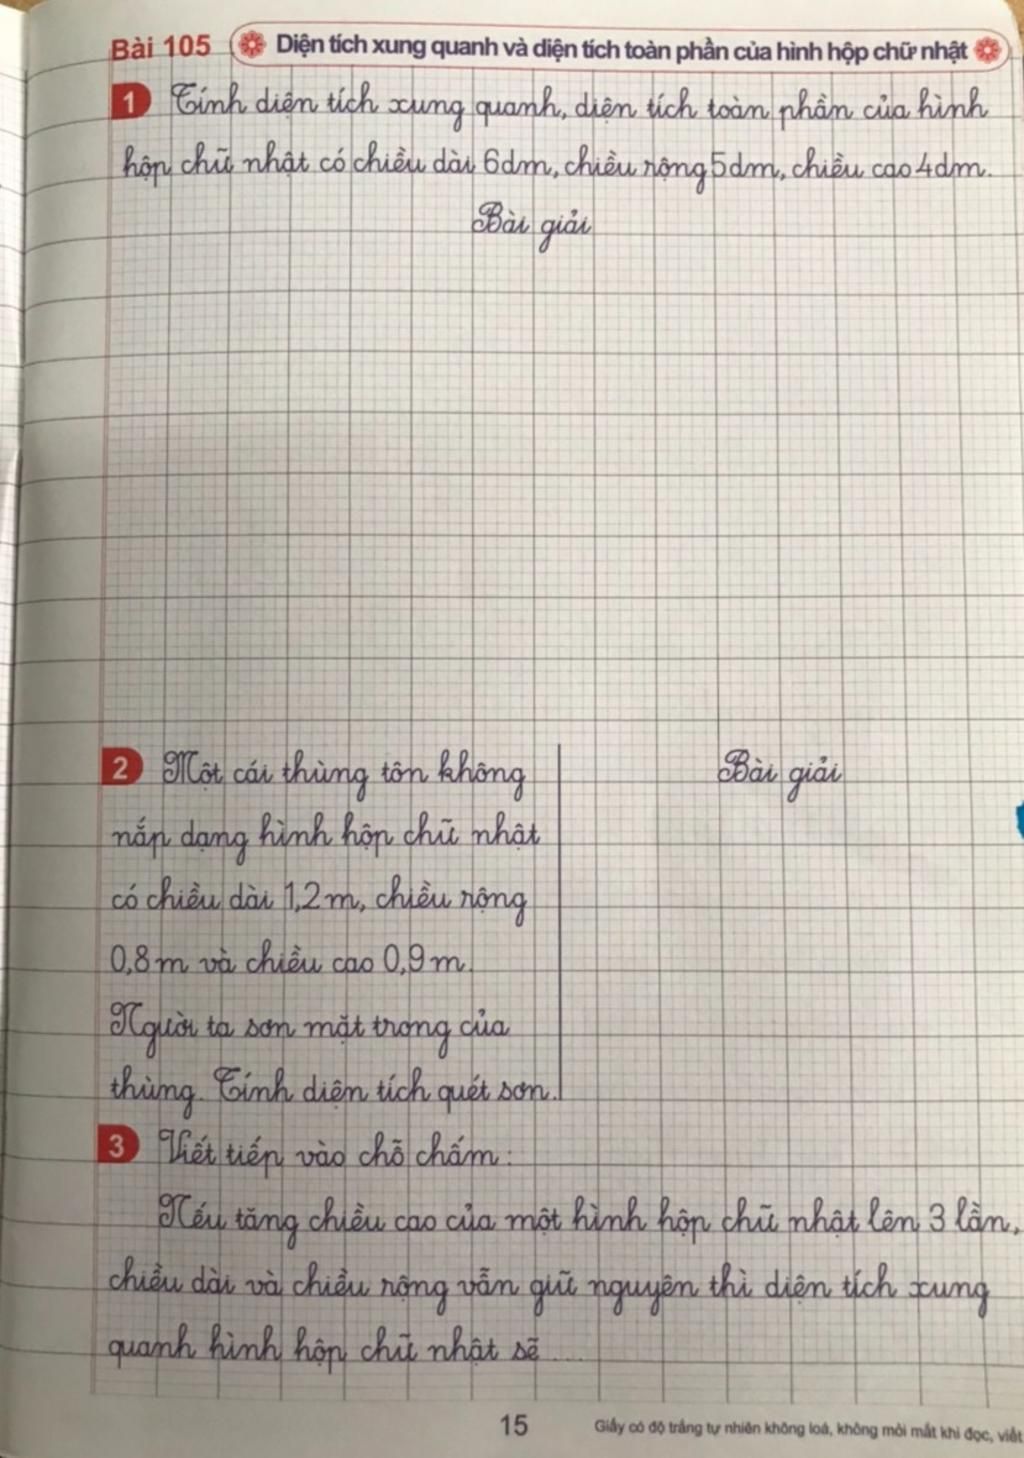 Bài 105 Diện tích xung quanh và diện tích toàn phần của hình hộp chữ nhật
1 Tính diện tích xung quanh, diện tích toàn phần của hình
hộp chữ nhật có chiều dài 6dm, chiều rộng 5dm, chiều cao 4dm.
Bài giải
2 Một cái thùng tôn không
nắp dạng hình hộp chữ nhật
có chiều dài 1,2m, chiều rộng
0,8m và chiều cao 0,9m.
Người ta sơn mặt trong của
thùng. Tính diện tích quét sơn.
Bài giải
3 Viết tiếp vào chỗ chấm:
Nếu tăng chiều cao của một hình hộp chữ nhật lên 3 lần,
chiều dài và chiều rộng vẫn giữ nguyên thì diện tích xung
quanh hình hộp chữ nhật sẽ ...
15
Giấy có độ trắng tự nhiên không loá, không mỏi mắt khi đọc, viết